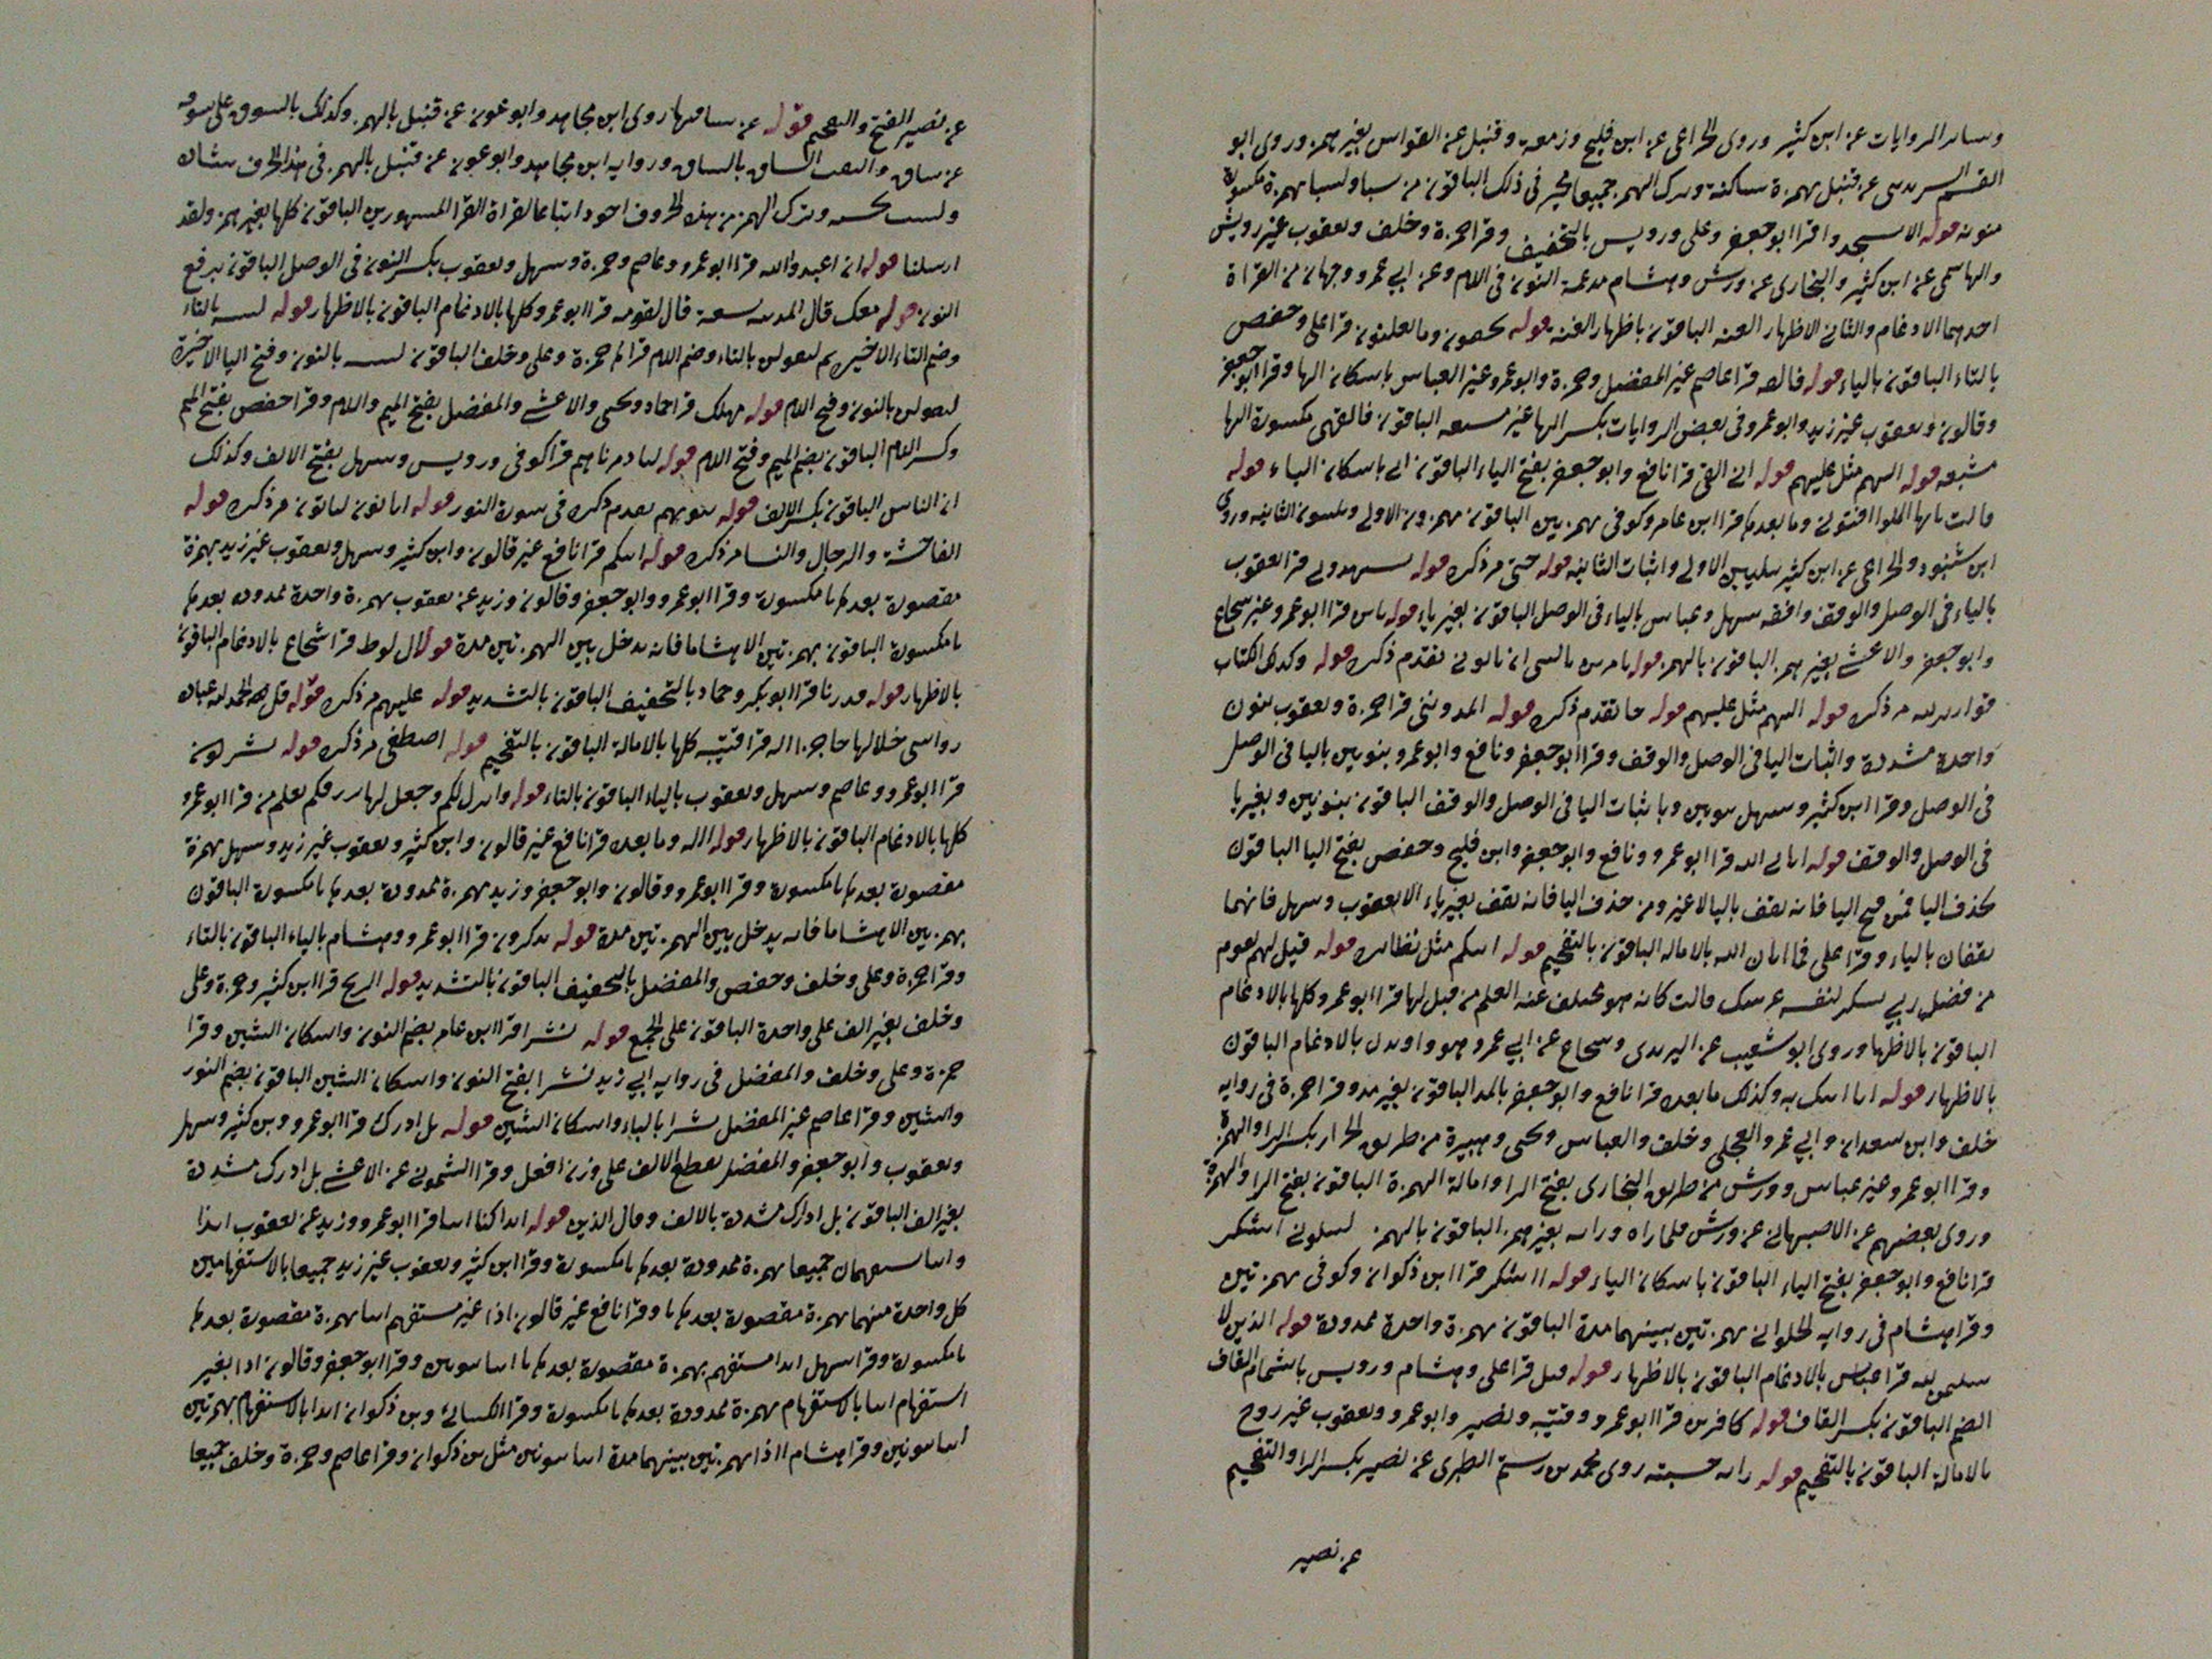 وسائر الروايات عن ابن كثير وروى الخزاعى عن ابن فليح وزمعة وقنبل عن القواس بغير همز وروى ابو
عن قنبل بهمزة ساكنة وترك الهمز جميعا فى ذلك الباقون من سبا ولسبا بهمزة مكسورة
منونه قوله الا يسجدوا قرا ابو جعفر وعلى ورويس بالتخفيف وقرا حمزة وخلف ويعقوب غير رويس
والهاشمى عن ابن كثير والبخارى عن ورش وهشام مدغمة النون فى اللام وعن ابي عمرو وجهان من القراة
احدهما الادغام والثانى الاظهار الغنه الباقون باظهار الغنه قوله تخفون وما تعلنون قرا على وحفص
بالتاء الباقون بالياء قوله فالقه قرا عاصم غير المفضل وحمزة وابو عمرو غير العباس باسكان الها وقرا ابو جعفر
وقالون ويعقوب غير زيد وابو عمرو فى بعض الروايات بكسر الها غير مشبعه الباقون فالقهى مكسورة الها
مشبعه قوله اليهم مثل عليهم قوله انى القى قرا نافع وابو جعفر بفتح الياء الباقون انى باسكان الياء قوله
قالت يايها الملوا افتونى وما بعدها قرا ابن عامر وكوفى بهمزتين الباقون
ابن شنبوذ والخزاعى عن ابن كثير بتليين الاولى واثبات الثانيه قوله حتى مر ذكره قوله تشهدون قرا يعقوب
بالياء فى الوصل والوقف وافقه سهل وعباس بالياء فى الوصل الباقون بغير ياء قوله باس قرا ابو عمرو غير شجاع
وابو جعفر والاعشى بغير همز الباقون بالهمز قوله تقدم ذكره قوله وكذلك الكتاب
مر ذكره قوله اليهم مثل عليهم قوله جا تقدم ذكره قوله اتمدوننى قرا حمزة ويعقوب بنون
واحدة مشددة واثبات اليا فى الوصل والوقف وقرا ابو جعفر ونافع وابو عمرو بنونين باليا فى الوصل
فى الوصل وقرا ابن كثير وسهل بنونين وباثبات اليا فى الوصل والوقف الباقون بنونين وبغير يا
فى الوصل والوقف قوله اتانى الله قرا ابو عمرو ونافع وابو جعفر وابن فليح وحفص بفتح اليا الباقون
بحذف اليا فمن فتح اليا فانه يقف باليا لا غير ومن حذف اليا فانه يقف بغير ياء الا يعقوب وسهل فانهما
يقفان بالياء وقرا على فما اتان الله بالاماله الباقون بالتفخيم قوله اتيكم مثل نظائره قوله قبل لهم تقوم
من فضل ربي يشكر لنفسه عرشك قالت كانه هو العلم من قبلها قرا ابو عمرو كلها بالادغام
الباقون بالاظهار وروى ابو شعيب عن اليزيدى وشجاع عن ابي عمرو هو واوتينا بالادغام الباقون
بالاظهار قوله انا اتيك به وكذلك ما بعده قرا نافع وابو جعفر بالمد الباقون بغير مد وقرا حمزة فى روايه
خلف وابن سعدان وابي عمرو العجلى وخلف والعباس ويحيى وهبيرة من طريق الخزاز بكسر الرا والهمزة
وقرا ابو عمرو غير عباس وورش من طريق البخارى بفتح الرا وامالة الهمزة الباقون بفتح الرا والهمزة
وروى بعضهم عن الاصبهانى عن ورش فلما راه وراته بغير همز الباقون بالهمز ليبلونى ااشكر
قرا نافع وابو جعفر بفتح الياء الباقون باسكان الياء قوله ااشكر قرا ابن ذكوان وكوفى بهمزتين
وقرا هشام فى روايه الحلوانى بهمزتين بينهما مدة الباقون بهمزة واحدة ممدودة قوله
قرا عباس بالادغام الباقون بالاظهار قوله قيل قرا على وهشام ورويس باشمام القاف
الضم الباقون بكسر القاف قوله كافرين قرا ابو عمرو وقتيبه ونصير وابو عمرو ويعقوب غير روح
بالامالة الباقون بالتفخيم قوله راته حسبته روى محمد بن رستم الطبرى عن نصير بكسر الرا والتفخيم
عن نصير
عن نصير الفتح والتفخيم قوله عن ساقيها روى ابن مجاهد وابو عون عن قنبل بالهمز وكذلك بالسوق على سوقه
عن ساق والتفت الساق بالساق وروايه ابن مجاهد وابو عون عن قنبل بالهمز فى هذا الحرف
وترك الهمز من هذه الحروف اجود اتباعا لقراة القرا المشهورين الباقون كلها بغير همز ولقد
ارسلنا قوله ان اعبدوا الله قرا ابو عمرو وعاصم وحمزة وسهل ويعقوب بكسر النون فى الوصل الباقون برفع
النون قوله معك قال المدينه تسعة قال لقومه قرا ابو عمرو كلها بالادغام الباقون بالاظهار قوله لتبيتنه بالتاء
وضم التاء الاخيره ثم لتقولن بالتاء وضم اللام قرا حمزة وعلى وخلف الباقون لنبيتنه بالنون وفتح اليا الاخيرة
لنقولن بالنون وفتح اللام قوله مهلك قرا حماد ويحيى والاعشى والمفضل بفتح الميم واللام وقرا حفص بفتح الميم
وكسر اللام الباقون بضم الميم وفتح اللام قوله انا دمرناهم قرا كوفى ورويس وسهل بفتح الالف وكذلك
ان الناس الباقون بكسر الالف قوله بيوتهم تقدم ذكره فى سورة النور قوله مر ذكره قوله
الفاحشة والرجال والنسا مر ذكره قوله ائنكم قرا نافع غير قالون وابن كثير وسهل ويعقوب غير زيد بهمزة
مقصورة بعدها يا مكسورة وقرا ابو عمرو وابو جعفر وقالون وزيد عن يعقوب بهمزة واحدة ممدوده بعدها
يا مكسورة الباقون بهمزتين الا هشاما فانه يدخل بين الهمزتين مدة قوله ال لوط قرا شجاع بالادغام الباقون
بالاظهار قوله قدرنا قرا ابو بكر وحماد بالتخفيف الباقون بالتشديد قوله عليهم مر ذكره قوله قل الحمد لله عباده
رواسى خلالها حاجزا اله قرا قتيبه كلها بالامالة الباقون بالتفخيم قوله اصطفى مر ذكره قوله يشركون
قرا ابو عمرو وعاصم وسهل ويعقوب بالياء الباقون بالتاء قوله وانزل لكم وجعل لها يرزقكم يعلم من قرا ابو عمرو
كلها بالادغام الباقون بالاظهار قوله االه وما بعده قرا نافع غير قالون وابن كثير ويعقوب غير زيد وسهل بهمزة
مقصورة بعدها يا مكسورة وقرا ابو عمرو وقالون وابو جعفر وزيد بهمزة ممدودة بعدها يا مكسورة الباقون
بهمزتين الا هشاما فانه يدخل بين الهمزتين مدة قوله يذكرون قرا ابو عمرو وهشام بالياء الباقون بالتاء
وقرا حمزة وعلى وخلف وحفص والمفضل بالتخفيف الباقون بالتشديد قوله الريح قرا ابن كثير وحمزة وعلى
وخلف بغير الف على واحدة الباقون على الجمع قوله نشرا قرا ابن عامر بضم النون واسكان الشين وقرا
حمزة وعلى وخلف والمفضل فى روايه ابي زيد نشرا بفتح النون واسكان الشين الباقون بضم النون
والشين وقرا عاصم غير المفضل بشرا بالباء واسكان الشين قوله بل ادرك قرا ابو عمرو وبن كثير وسهل
ويعقوب وابو جعفر والمفضل بقطع الالف على وزن افعل وقرا الشمونى عن الاعشى بل ادرك مشددة
بغير الف الباقون بل ادارك مشددة بالالف وقال الذين قوله ائذا كنا ائنا قرا ابو عمرو وزيد عن يعقوب ائذا
وائنا يستفهمان جميعا بهمزة ممدودة بعدها يا مكسورة وقرا ابن كثير ويعقوب غير زيد جميعا بالاستفهامين
كل واحدة منهما بهمزة مقصورة بعدها يا وقرا نافع غير قالون اذا غير مستفهم ائنا بهمزة مقصورة بعدها
يا مكسورة وقرا سهل ائذا مستفهم بهمزة مقصورة بعدها يا اننا بنونين وقرا ابو جعفر وقالون اذا بغير
استفهام ائنا بالاستفهام بهمزة ممدودة بعدها يا مكسورة وقرا الكسائى وبن ذكوان ائذا بالاستفهام بهمزتين
اننا بنونين وقرا هشام ااذا بهمزتين بينهما مدة اننا بنونين مثل بن ذكوان وقرا عاصم وحمزة وخلف جميعا